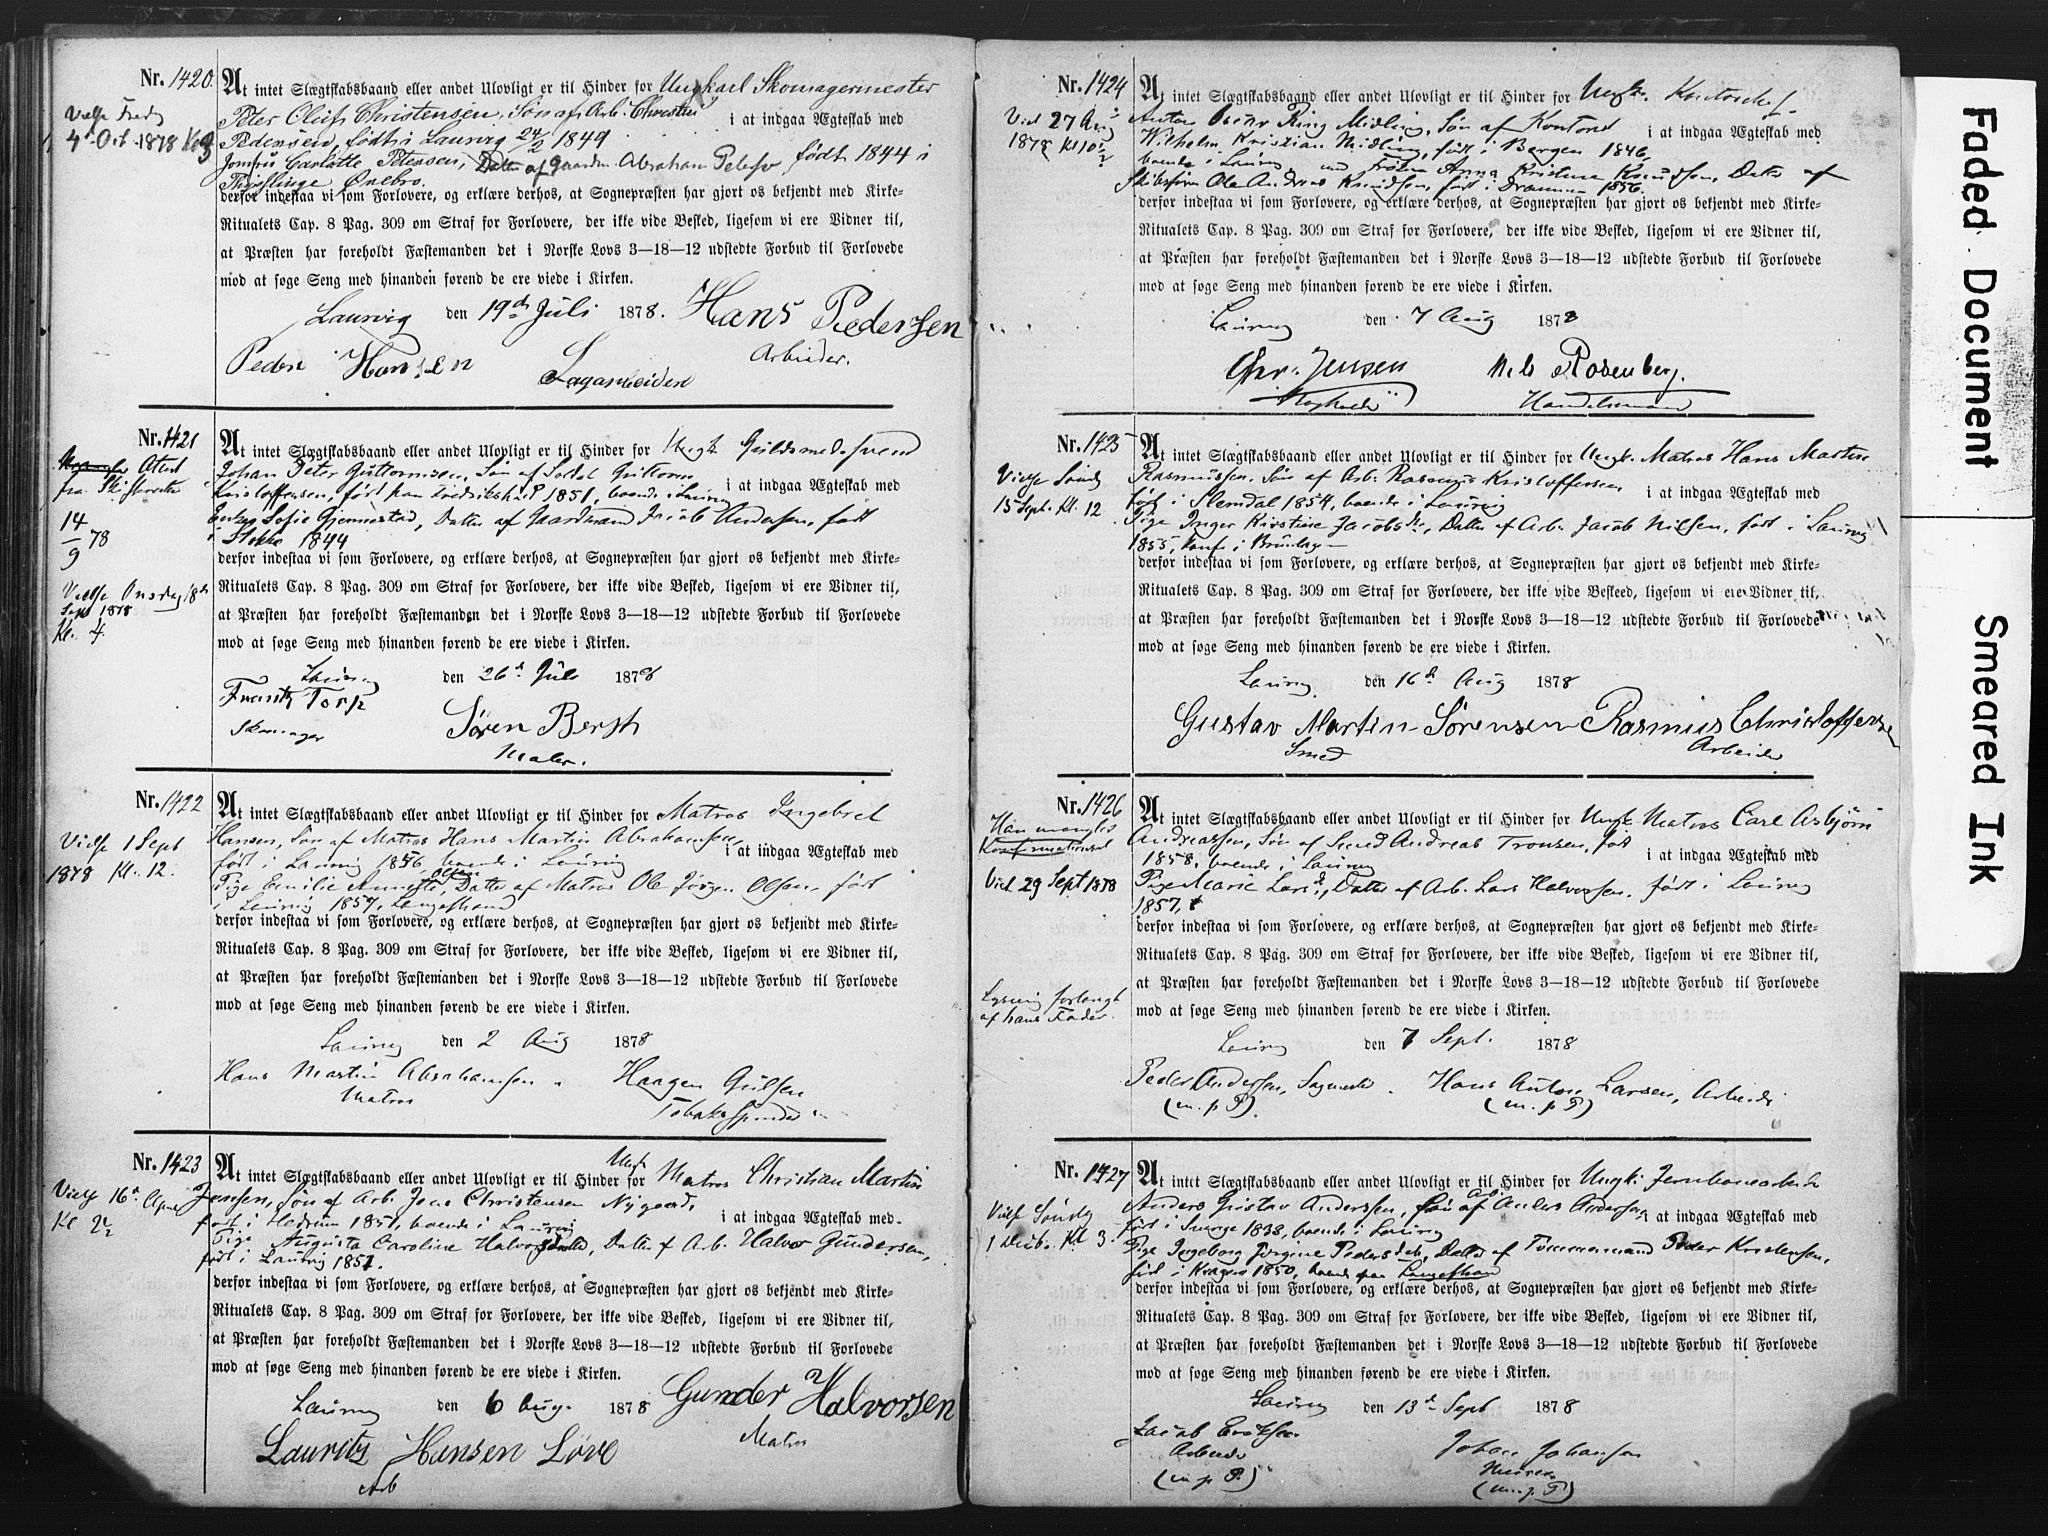 Nr. 1420. At intet Slægtskabsbaand eller andet Ulovligt er til Hinder for Ungkarl Skomagermester
Vielse Fredg
4de Oct. 1878 Kl 3
Peter Oluf Christensen, Søn af Arb. Christen
i at indgaa Ægteskab med
Pedersen, født i Laurvig 24/2 1849
Jomfru Carlotte Petersen, Datter af Gaardm. Abraham Peterson, født 1844 i
Ørebro.
derfor indestaa vi som Forlovere, og erklære derhos, at Sognepræsten har gjort os bekjendt med Kirke-
Ritualets Cap. 8 Pag. 309 om Straf for Forlovere, der ikke vide Besked, ligesom vi ere Vidner til,
at Præsten har foreholdt Fæstemanden det i Norske Lovs 3—18—12 udstedte Forbud til Forlovede
mod at søge Seng med hinanden førend de ere viede i Kirken.
Laurvig den 19de Juli 1878. Hans Pedersen
Arbeider.
Peder Hansen
Sagarbeider
Nr. 1421 At intet Slægtskabsbaand eller andet Ulovligt er til Hinder for Ungk Guldsmedsvend
Attest
fra
14/9 78
Vielse Onsdag 18de
Sept 1878
Kl. 4.
Johan Peter Guttormsen, Søn af Guttorm
Kristoffersen, født paa Fredrikshald 1851, boende i Laurvig
i at indgaa Ægteskab med
Enke Sofie Gjennestad, Datter af Gaardmand Jacob Andersen, født
i Stokke 1844
derfor indestaa vi som Forlovere, og erklære derhos, at Sognepræsten har gjort os bekjendt med Kirke-
Ritualets Cap. 8 Pag. 309 om Straf for Forlovere, der ikke vide Besked, ligesom vi ere Vidner til,
at Præsten har foreholdt Fæstemanden det i Norske Lovs 3—18—12 udstedte Forbud til Forlovede
mod at søge Seng med hinanden førend de ere viede i Kirken.
Laurvig den 26de Juli 1878
Frantz Torp
Skomager
Søren Bersth
Maler.
Nr. 1422 At intet Slægtskabsbaand eller andet Ulovligt er til Hinder for Matros Ingebret
Vielse 1 Sept
1878 Kl. 12.
Hansen, Søn af Matros Hans Martin Abrahamsen,
i at indgaa Ægteskab med
født i Laurvig 1856, boende i Laurvig
Pige Emilie Annette Olsen, Datter af Matros Ole Jørgen Olsen, født
i Laurvig 1857, Langestrand
derfor indestaa vi som Forlovere, og erklære derhos, at Sognepræsten har gjort os bekjendt med Kirke-
Ritualets Cap. 8 Pag. 309 om Straf for Forlovere, der ikke vide Besked, ligesom vi ere Vidner til,
at Præsten har foreholdt Fæstemanden det i Norske Lovs 3—18—12 udstedte Forbud til Forlovede
mod at søge Seng med hinanden førend de ere viede i Kirken.
Laurvig den 2 Aug 1878
Hans Martin Abrahamsen
Matros
Haagen Gulsen
Tobaksspinder
Nr. 1423 At intet Slægtskabsbaand eller andet Ulovligt er til Hinder for Ungk Matros Christian Martin
Vielse 16de
Kl 2½
Jensen, Søn af Arb. Jens Christensen Nygaard,
i at indgaa Ægteskab med
født i Hedrum 1851, boende i Laurvig
Pige Augusta Caroline Halvorsdatter, Datter af Arb. Halvor Gundersen,
født i Laurvig 1851.
derfor indestaa vi som Forlovere, og erklære derhos, at Sognepræsten har gjort os bekjendt med Kirke-
Ritualets Cap. 8 Pag. 309 om Straf for Forlovere, der ikke vide Besked, ligesom vi ere Vidner til,
at Præsten har foreholdt Fæstemanden det i Norske Lovs 3—18—12 udstedte Forbud til Forlovede
mod at søge Seng med hinanden førend de ere viede i Kirken.
Laurvig den 6 Aug. 1878 Gunder Halvorsen
Matros
Lauritz Hansen Löve
Arb
Nr. 1424 At intet Slægtskabsbaand eller andet Ulovligt er til Hinder for Ungk. Kontorchef
Viel 27 Aug
1878 Kl 10½
Anton Oscar Ring Midling, Søn af Kontorist
i at indgaa Ægteskab med
Wilhelm Kristian Midling, født i Bergen 1846,
boende i Laurvig med Frøken Anna Kristine Knudsen, Datter af
Skibsfører Ole Andreas Knudsen, født i Drammen 1856.
derfor indestaa vi som Forlovere, og erklære derhos, at Sognepræsten har gjort os bekjendt med Kirke-
Ritualets Cap. 8 Pag. 309 om Straf for Forlovere, der ikke vide Besked, ligesom vi ere Vidner til,
at Præsten har foreholdt Fæstemanden det i Norske Lovs 3—18—12 udstedte Forbud til Forlovede
mod at søge Seng med hinanden førend de ere viede i Kirken.
Laurvig den 7 Aug 1878
Chr. Jensen
Nils Rosenberg.
Handelsmand
Nr. 1425 At intet Slægtskabsbaand eller andet Ulovligt er til Hinder for Ungk. Matros Hans Martin
Vielse Søndg
15 Sept. Kl. 12
Rasmussen, Søn af Arb. Rasmus Kristoffersen
i at indgaa Ægteskab med
født i Slemdal 1854, boende i Laurvig
Pige Inger Kirstine Jacobsdr, Datter af Arb. Jacob Nilsen, født i Laurvig
1855, konf. i Brunlag
derfor indestaa vi som Forlovere, og erklære derhos, at Sognepræsten har gjort os bekjendt med Kirke-
Ritualets Cap. 8 Pag. 309 om Straf for Forlovere, der ikke vide Beskeed, ligesom vi ere Vidner til,
at Præsten har foreholdt Fæstemanden det i Norske Lovs 3—18—12 udstedte Forbud til Forlovede
mod at søge Seng med hinanden førend de ere viede i Kirken.
Laurvig den 16de Aug 1878
Gustav Martin Sørensen Rasmus Christoffersen
Smed
Arbeider
Nr. 1426 At intet Slægtskabsbaand eller andet Ulovligt er til Hinder for Ungk Matros Carl Asbjørn
Han mangler
Konfirmationsat
Viel 29 Sept 1878
Andreassen, Søn af Smed Andreas Tronsen, født
i at indgaa Ægteskab med
1858, boende i Laurvig
Pige Marie Larsd, Datter af Arb. Lars Halvorsen, født i Laurvig
1857,
derfor indestaa vi som Forlovere, og erklære derhos, at Sognepræsten har gjort os bekjendt med Kirke-
Ritualets Cap. 8 Pag. 309 om Straf for Forlovere, der ikke vide Besked, ligesom vi ere Vidner til,
at Præsten har foreholdt Fæstemanden det i Norske Lovs 3—18—12 udstedte Forbud til Forlovede
Lysning forlangt
af hans Fader.
mod at søge Seng med hinanden førend de ere viede i Kirken.
Laurvig den 7 Sept. 1878
Peder Andersen, Sagmester. Hans Anton Larsen, Arbeider
(m. p P) (m. p P)
Nr. 1427 At intet Slægtskabsbaand eller andet Ulovligt er til Hinder for Ungk. Jernbanearbeider
Vielse Søndg
1 Decbr. Kl 3.
Anders Gustav Anderssen, Søn af Arb. Anders Andersen
i at indgaa Ægteskab med
født i Sverige 1838, boende i Laurvig
Pige Ingeborg Jørgine Pedersdatt, Datter af Tømmermand Peder Kristensen,
født i Kragerø 1850, boende paa Langestrand
derfor indestaa vi som Forlovere, og erklære derhos, at Sognepræsten har gjort os bekjendt med Kirke-
Ritualets Cap. 8 Pag. 309 om Straf for Forlovere, der ikke vide Besked, ligesom vi ere Vidner til,
at Præsten har foreholdt Fæstemanden det i Norske Lovs 3—18—12 udstedte Forbud til Forlovede
mod at søge Seng med hinanden førend de ere viede i Kirken.
Laurvig den 13de Sept 1878
Jacob Eriksen
Arbeider
(m. p P.)
Johan Johansen
Murer
(m. p. P.)
Faded Document
Smeared Ink